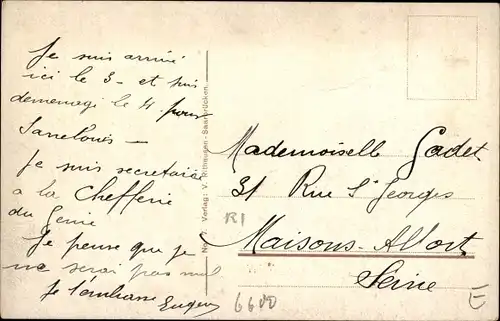 Je suis arrivé
ici le 3 - et suis
demenagé le 4 pour
Sarrelouis -
Je suis secretaire
a la Chefferie
du Genie
Je pense que je
ne serai pas mal
Je t'embrasse Eugen
Verlag: V. Rithausen - Saarbrücken.
Mademoiselle Gadet
31 Rue St Georges
RI
Maisons-Alfort
Seine
6600
E